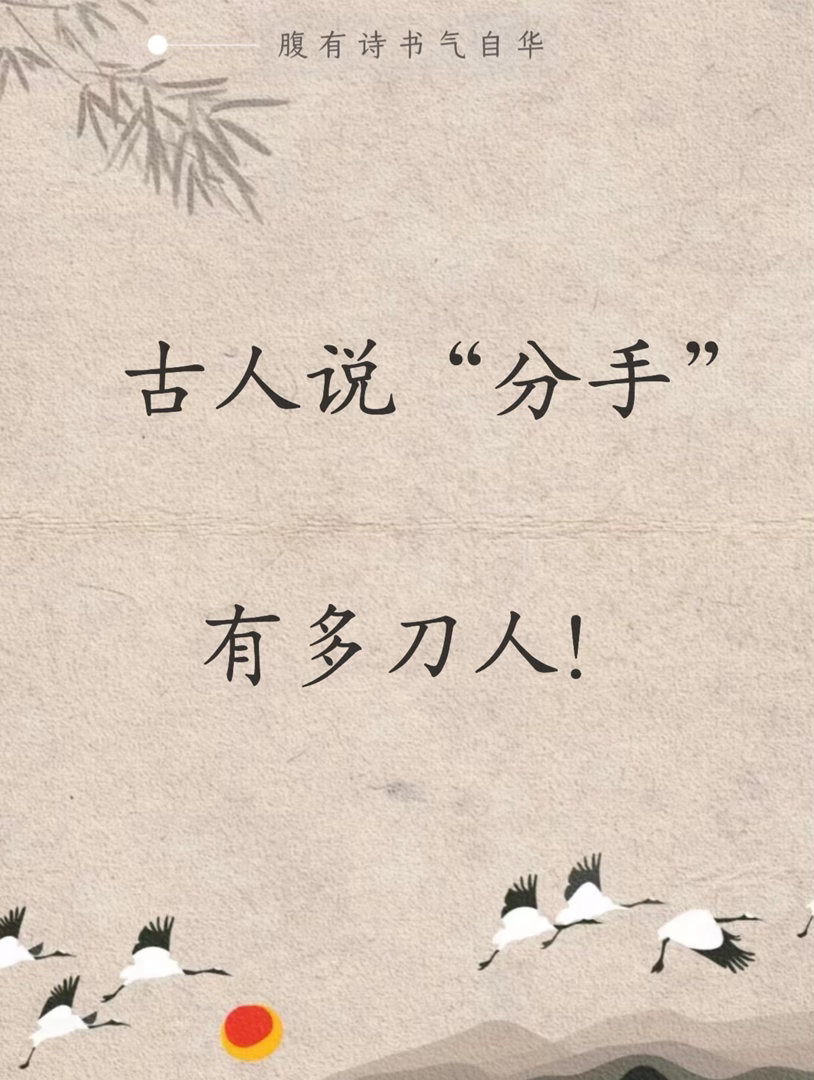 腹有诗书气自华
古人说“分手”
有多刀人!